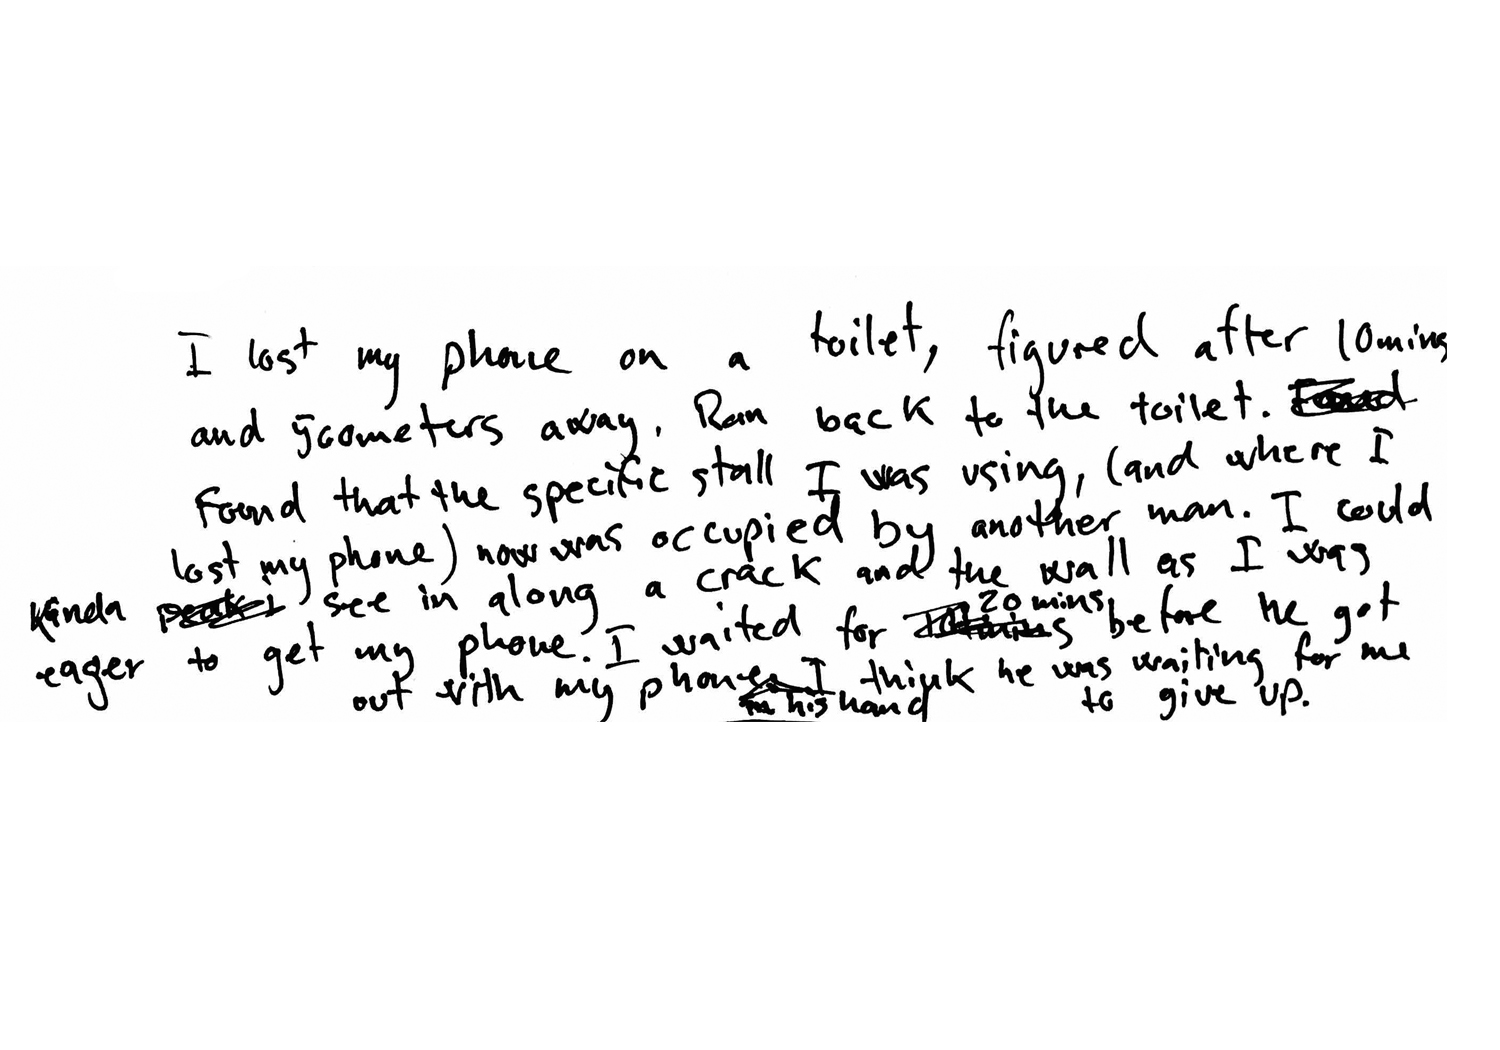 I lost my phone on a toilet, figured after 10mins
and 500meters away. Ran back to the toilet.
Found that the specific stall I was using, (and where I
lost my phone) now was occupied by another man. I could
kinda see in along a crack and the wall as I was
eager to get my phone. I waited for 20 mins before he got
out with my phone in his hand. I think he was waiting for me
to give up.